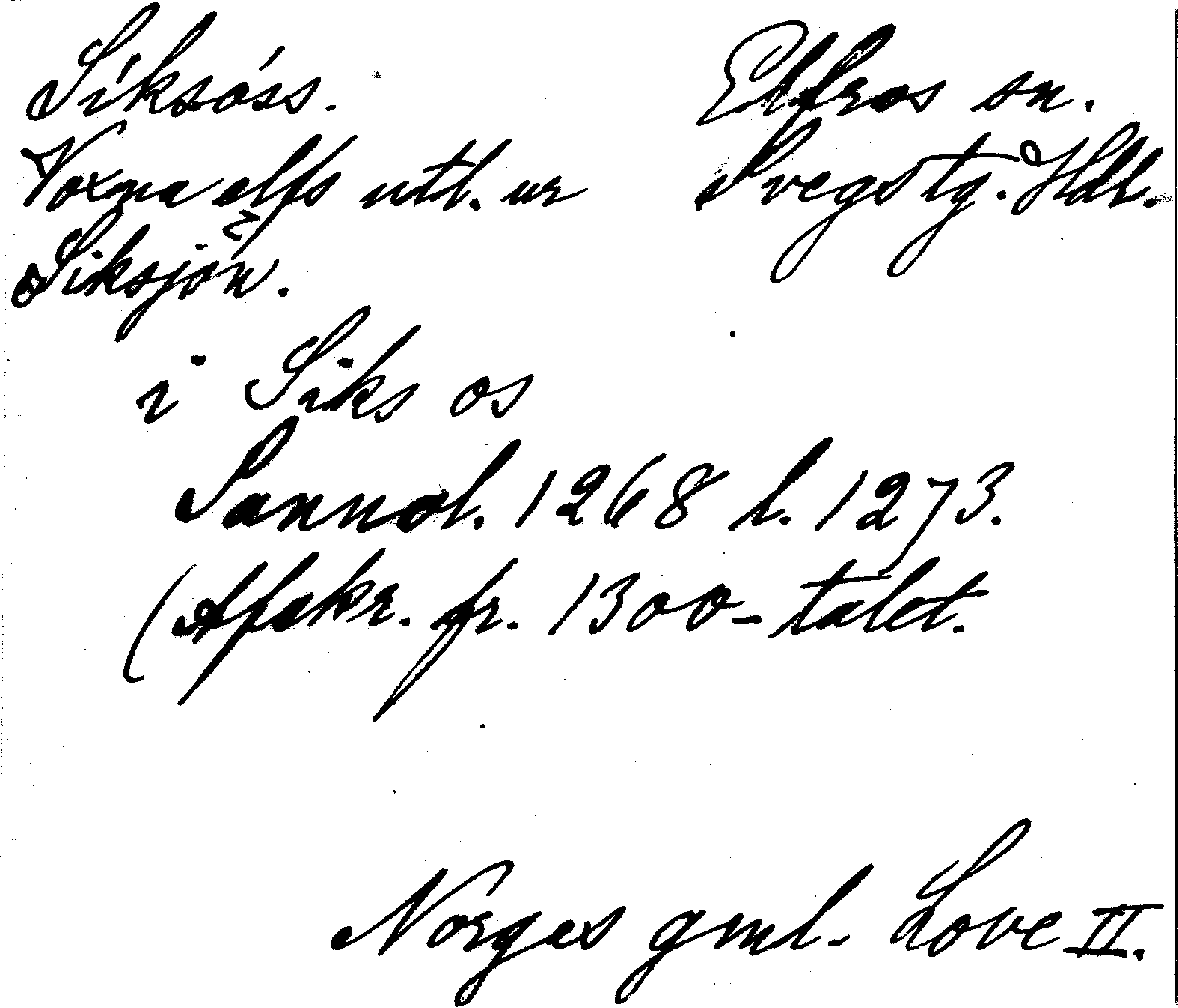 Síksóss.
Elfros sn.
Voxna elfs utl. ur
Svegs tg. Hdl.
Siksjön.
i Siks os
Sannol. 1268 l. 1273.
(Afskr. fr. 1300-talet.
Norges gml. Love II.